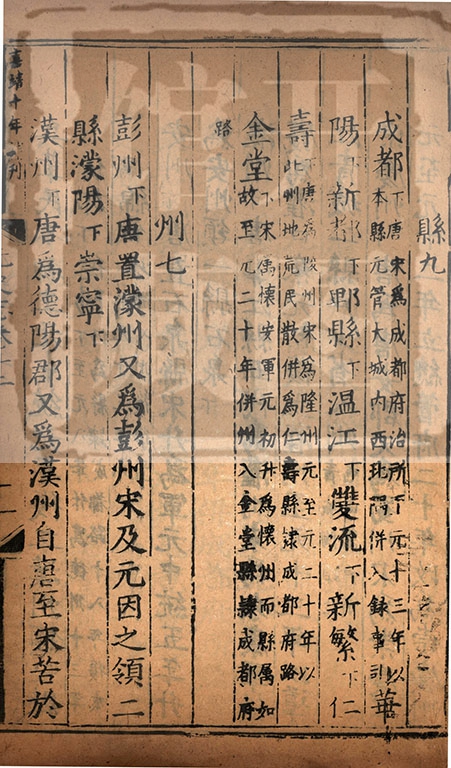 縣九
成都下唐宋爲成都府治所下元十三年以
本縣元管大城内西北隅併入録事司華
陽下新都下郫縣下温江下雙流下新繁下仁
壽下唐爲陵州宋爲隆州元至元二十年以
此州地荒民散併爲仁壽縣隷成都府路
金堂下宋屬懷安軍元初升爲懷州而縣属如
故至元二十年併州入金堂縣隷成都府
路
州七
彭州下唐置濛州又爲彭州宋及元因之領二
縣濛陽下崇寧下
漢州下唐爲德陽郡又爲漢州自唐至宋苦於
嘉靖十年刊